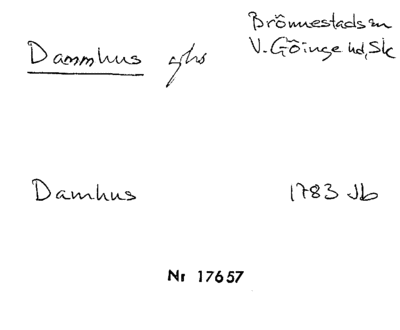 Brönnestads sn
Dammhus ghs V. Göinge hd, Sk
Damhus 1783 Jb
Nr 17657